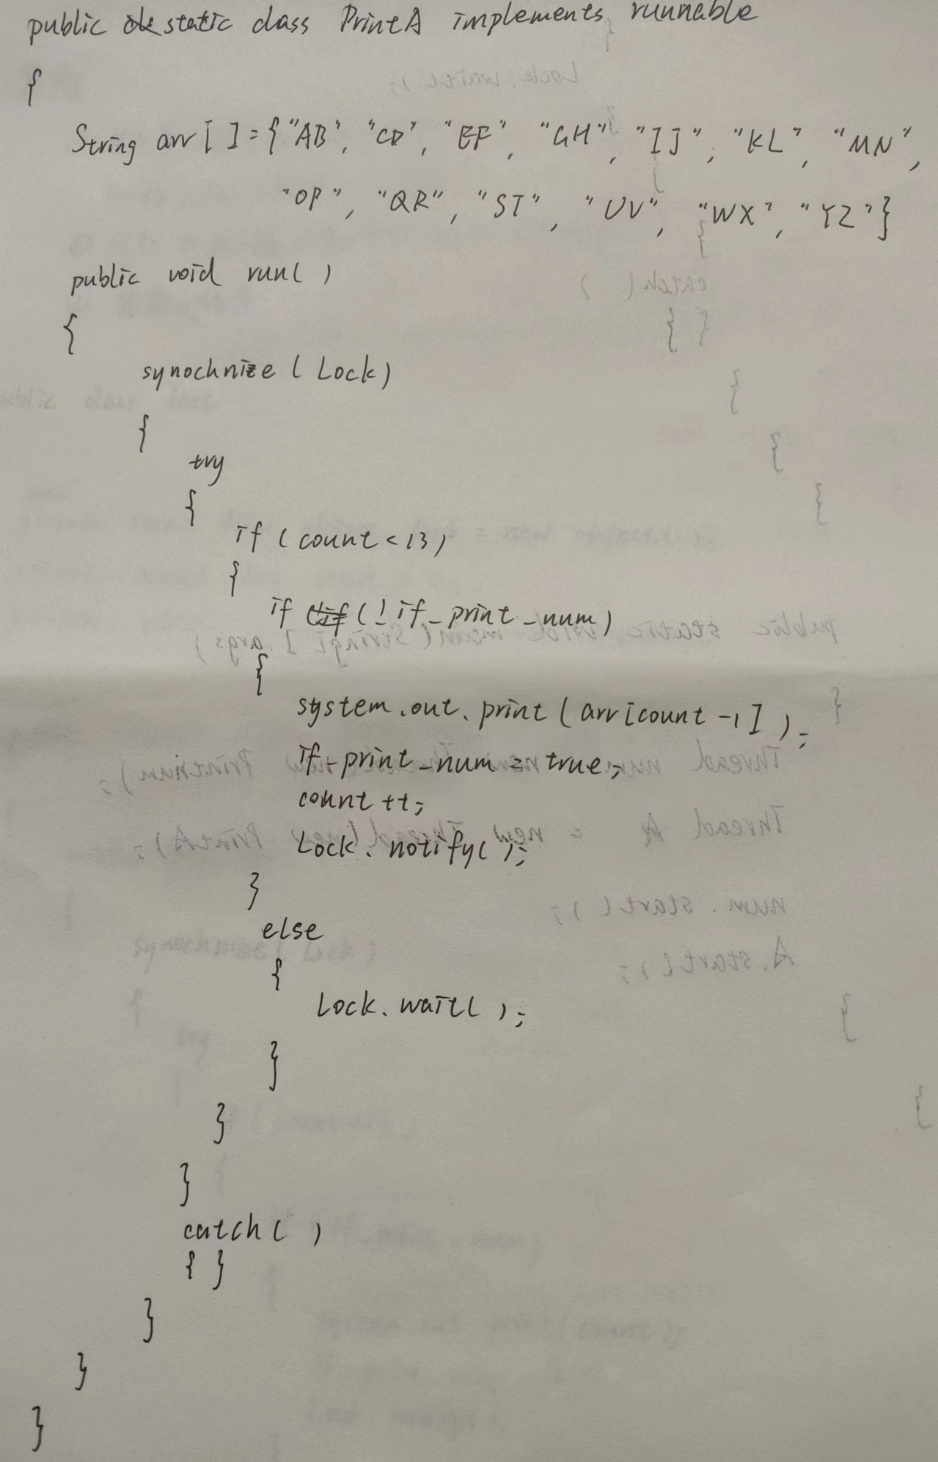 public static class PrintA implements runnable
{
String arr [ ] = { "AB", "CD", "EF", "GH", "IJ", "KL", "MN",
"OP", "QR", "ST", "UV", "WX", "YZ" }
public void run( )
{
synochnize ( Lock)
{
try
{
if ( count < 13)
{
if ( ! if_print_num)
{
system.out.print ( arr [count -1] );
if_print_num = true;
count ++;
Lock.notify( );
}
else
{
Lock.wait( );
}
}
}
catch ( )
{ }
}
}
}